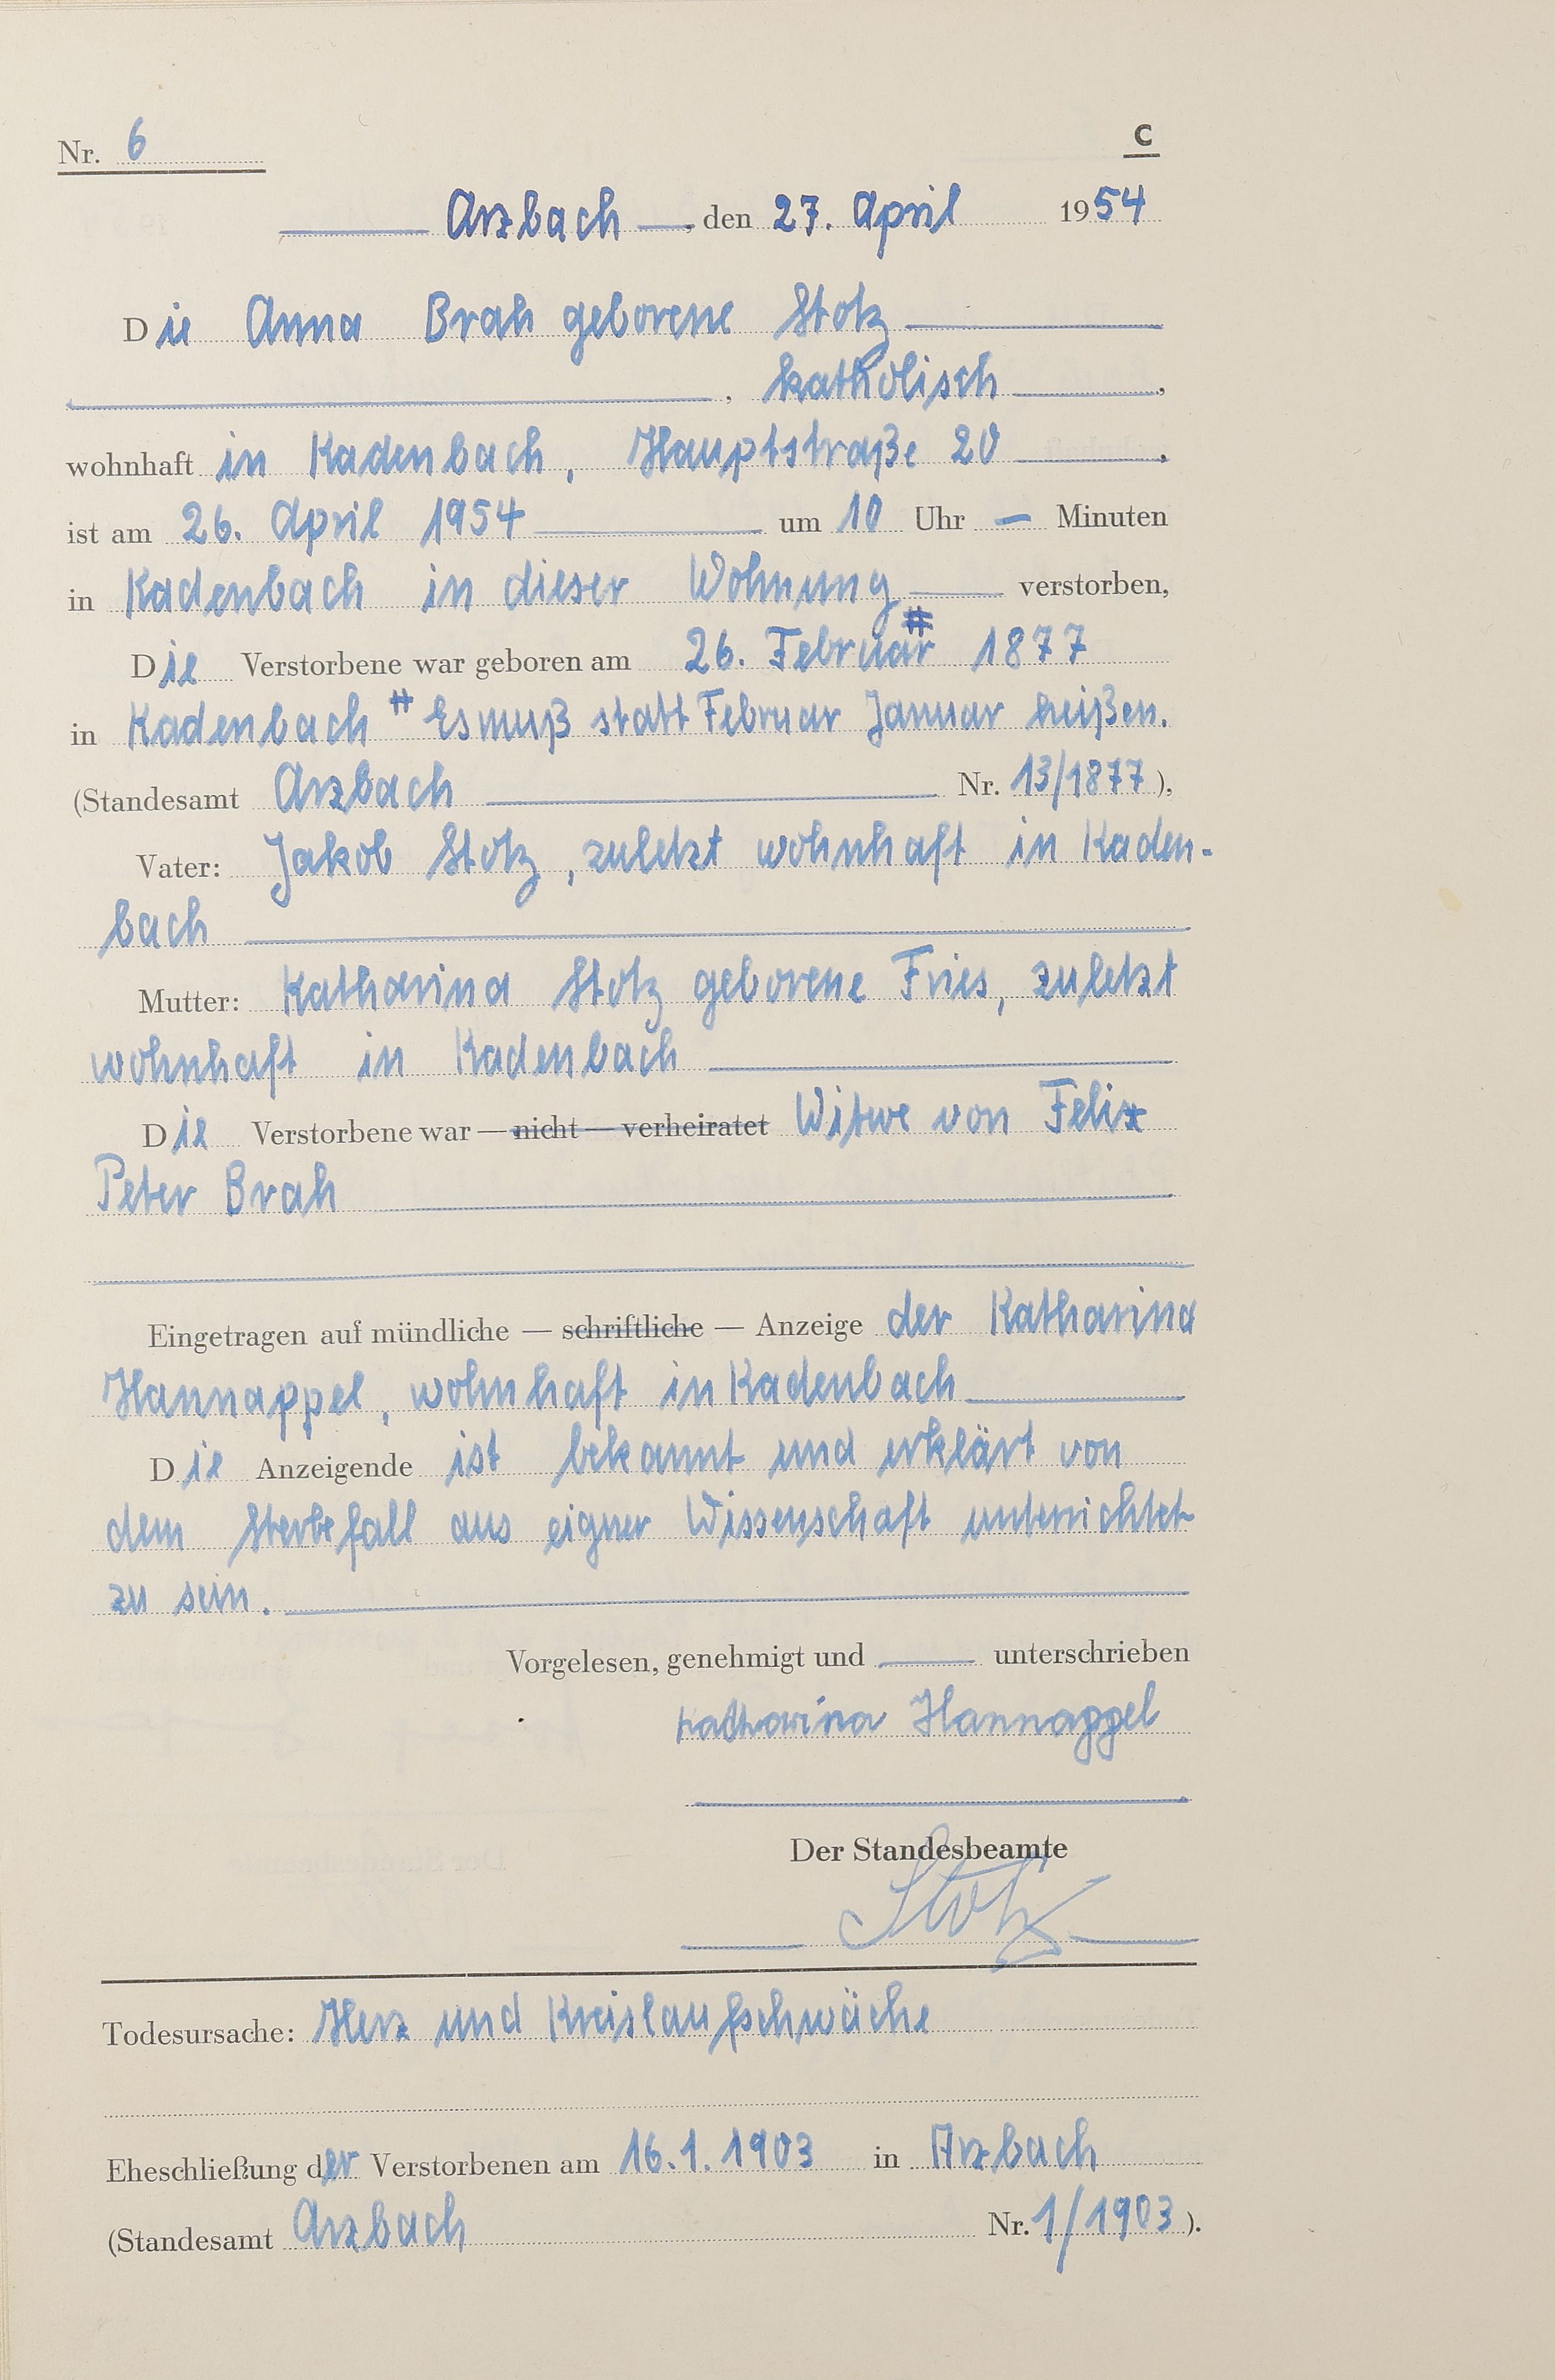 Nr. 6
C
Arzbach, den 27. April 1954
Die Anna Brah geborene Stotz
, katholisch,
wohnhaft in Kadenbach, Hauptstraße 20,
ist am 26. April 1954 um 10 Uhr — Minuten
in Kadenbach in dieser Wohnung verstorben,
Die Verstorbene war geboren am 26. Februar # 1877
in Kadenbach # Es muß statt Februar Januar heißen.
(Standesamt Arzbach Nr. 13/1877),
Vater: Jakob Stotz, zuletzt wohnhaft in Kaden-
bach
Mutter: Katharina Stotz geborene Fries, zuletzt
wohnhaft in Kadenbach
Die Verstorbene war — nicht — verheiratet Witwe von Felix
Peter Brah
Eingetragen auf mündliche — schriftliche — Anzeige der Katharina
Hannappel, wohnhaft in Kadenbach
Die Anzeigende ist bekannt und erklärt von
dem Sterbefall aus eigner Wissenschaft unterrichtet
zu sein.
Vorgelesen, genehmigt und — unterschrieben
Katharina Hannappel
Der Standesbeamte
Stotz
Todesursache: Herz und Kreislaufschwäche
Eheschließung der Verstorbenen am 16.1.1903 in Arzbach
(Standesamt Arzbach Nr. 1/1903).